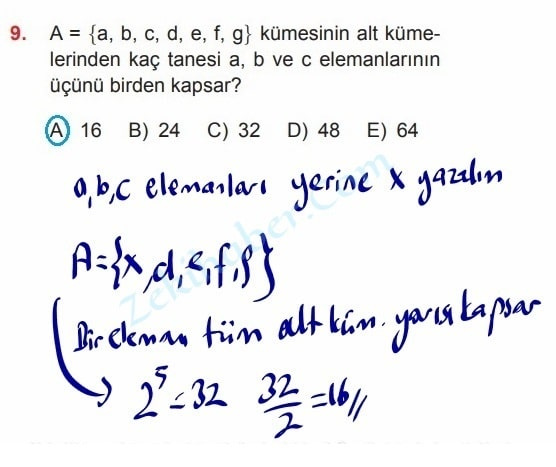 9. A = {a, b, c, d, e, f, g} kümesinin alt küme-
lerinden kaç tanesi a, b ve c elemanlarının
üçünü birden kapsar?
A) 16 B) 24 C) 32 D) 48 E) 64
a,b,c elemanları yerine x yazalım
A={x,d,e,f,g}
Bir eleman tüm alt küm. yarısı kapsar
2⁵=32 32/2=16//
Zekihaber.Com